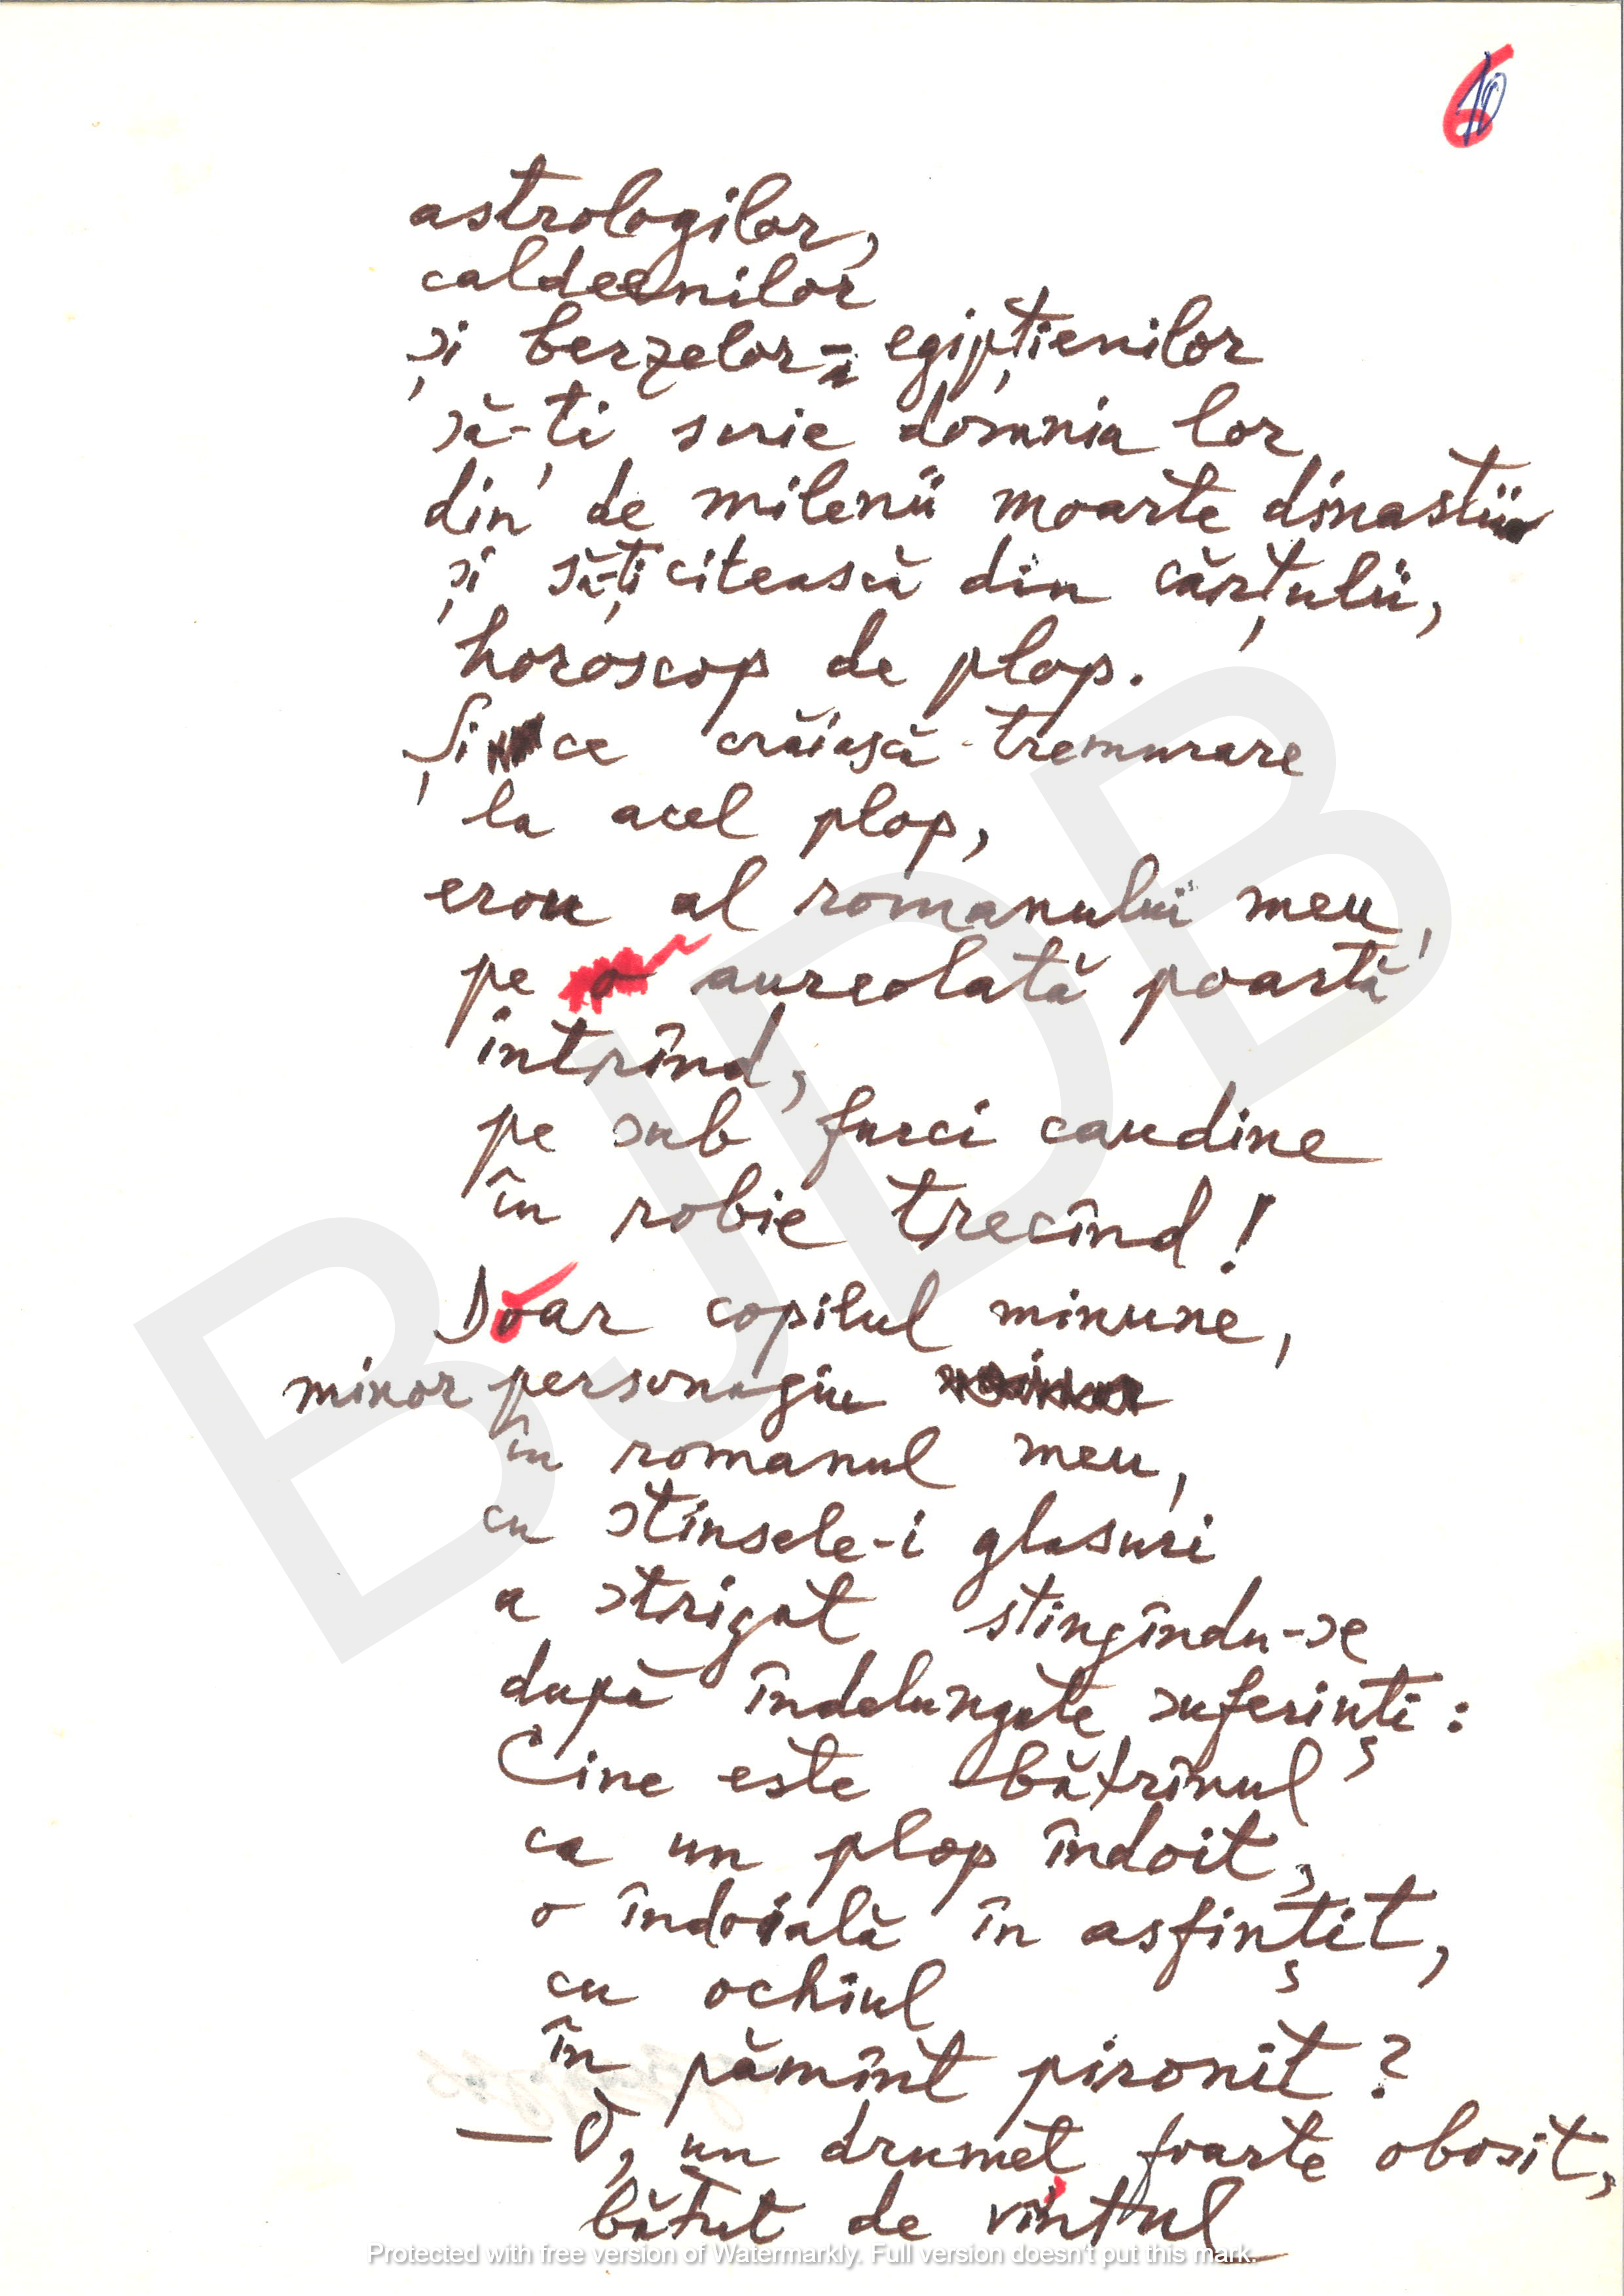 6
10
astrologilor,
caldeenilor
și berzelor - egipțienilor
să-ți scrie domnia lor
din de milenii moarte dinastii
și să-ți citească din cărțulii,
horoscop de plop.
Și ce crăiască tremurare
la acel plop,
erou al romanului meu,
pe aureolată poartă
intrînd,
pe sub furci caudine
în robie trecînd!
Doar copilul minune,
minor personagiu
în romanul meu,
cu stinsele-i glasuri
a strigat stingîndu-se
după îndelungate suferinți:
Cine este bătrînul
ca un plop îndoit,
o îndoială în asfințit,
cu ochiul
în pămînt pironit?
— O, un drumeț foarte obosit,
bătut de vîntul
BJDB
Protected with free version of Watermarkly. Full version doesn't put this mark.